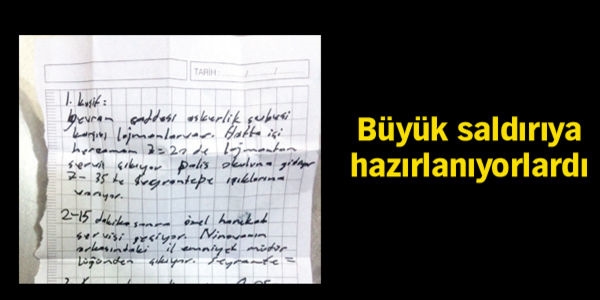 TARİH: ....../....../......
1. keşif:
Gevran caddesi askerlik şubesi
karşısı lojmanlar var. Hafta içi
her zaman 7=20 de lojmanlardan
servis çıkıyor polis okuluna gidiyor
7-35 te Seyrantepe ışıklarına
varıyor.
2-15 dakika sonra özel harekat
servisi geçiyor. Ninovanın
arkasındaki il emniyet müdür
lüğünden çıkıyor. Seyrante=
Büyük saldırıya
hazırlanıyorlardı